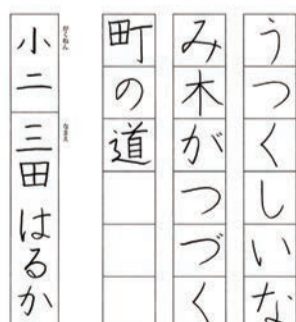 うつくしいな
み木がつづく
町の道
がくねん
小二
なまえ
三田はるか